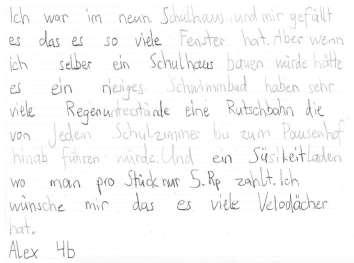 Ich war im neun Schulhaus und mir gefällt
es das es so viele Fenster hat. Aber wenn
ich selber ein Schulhaus bauen würde hätte
es ein riesiges Schwimmbad haben sehr
viele Regenunterstände eine Rutschbahn die
von Jedem Schulzimmer bis zum Pausenhof
hinab führen würde. Und ein Süsikeitladen
wo man pro Stück nur 5. Rp zahlt. Ich
wünsche mir das es viele Velodächer
hat.
Alex 4b